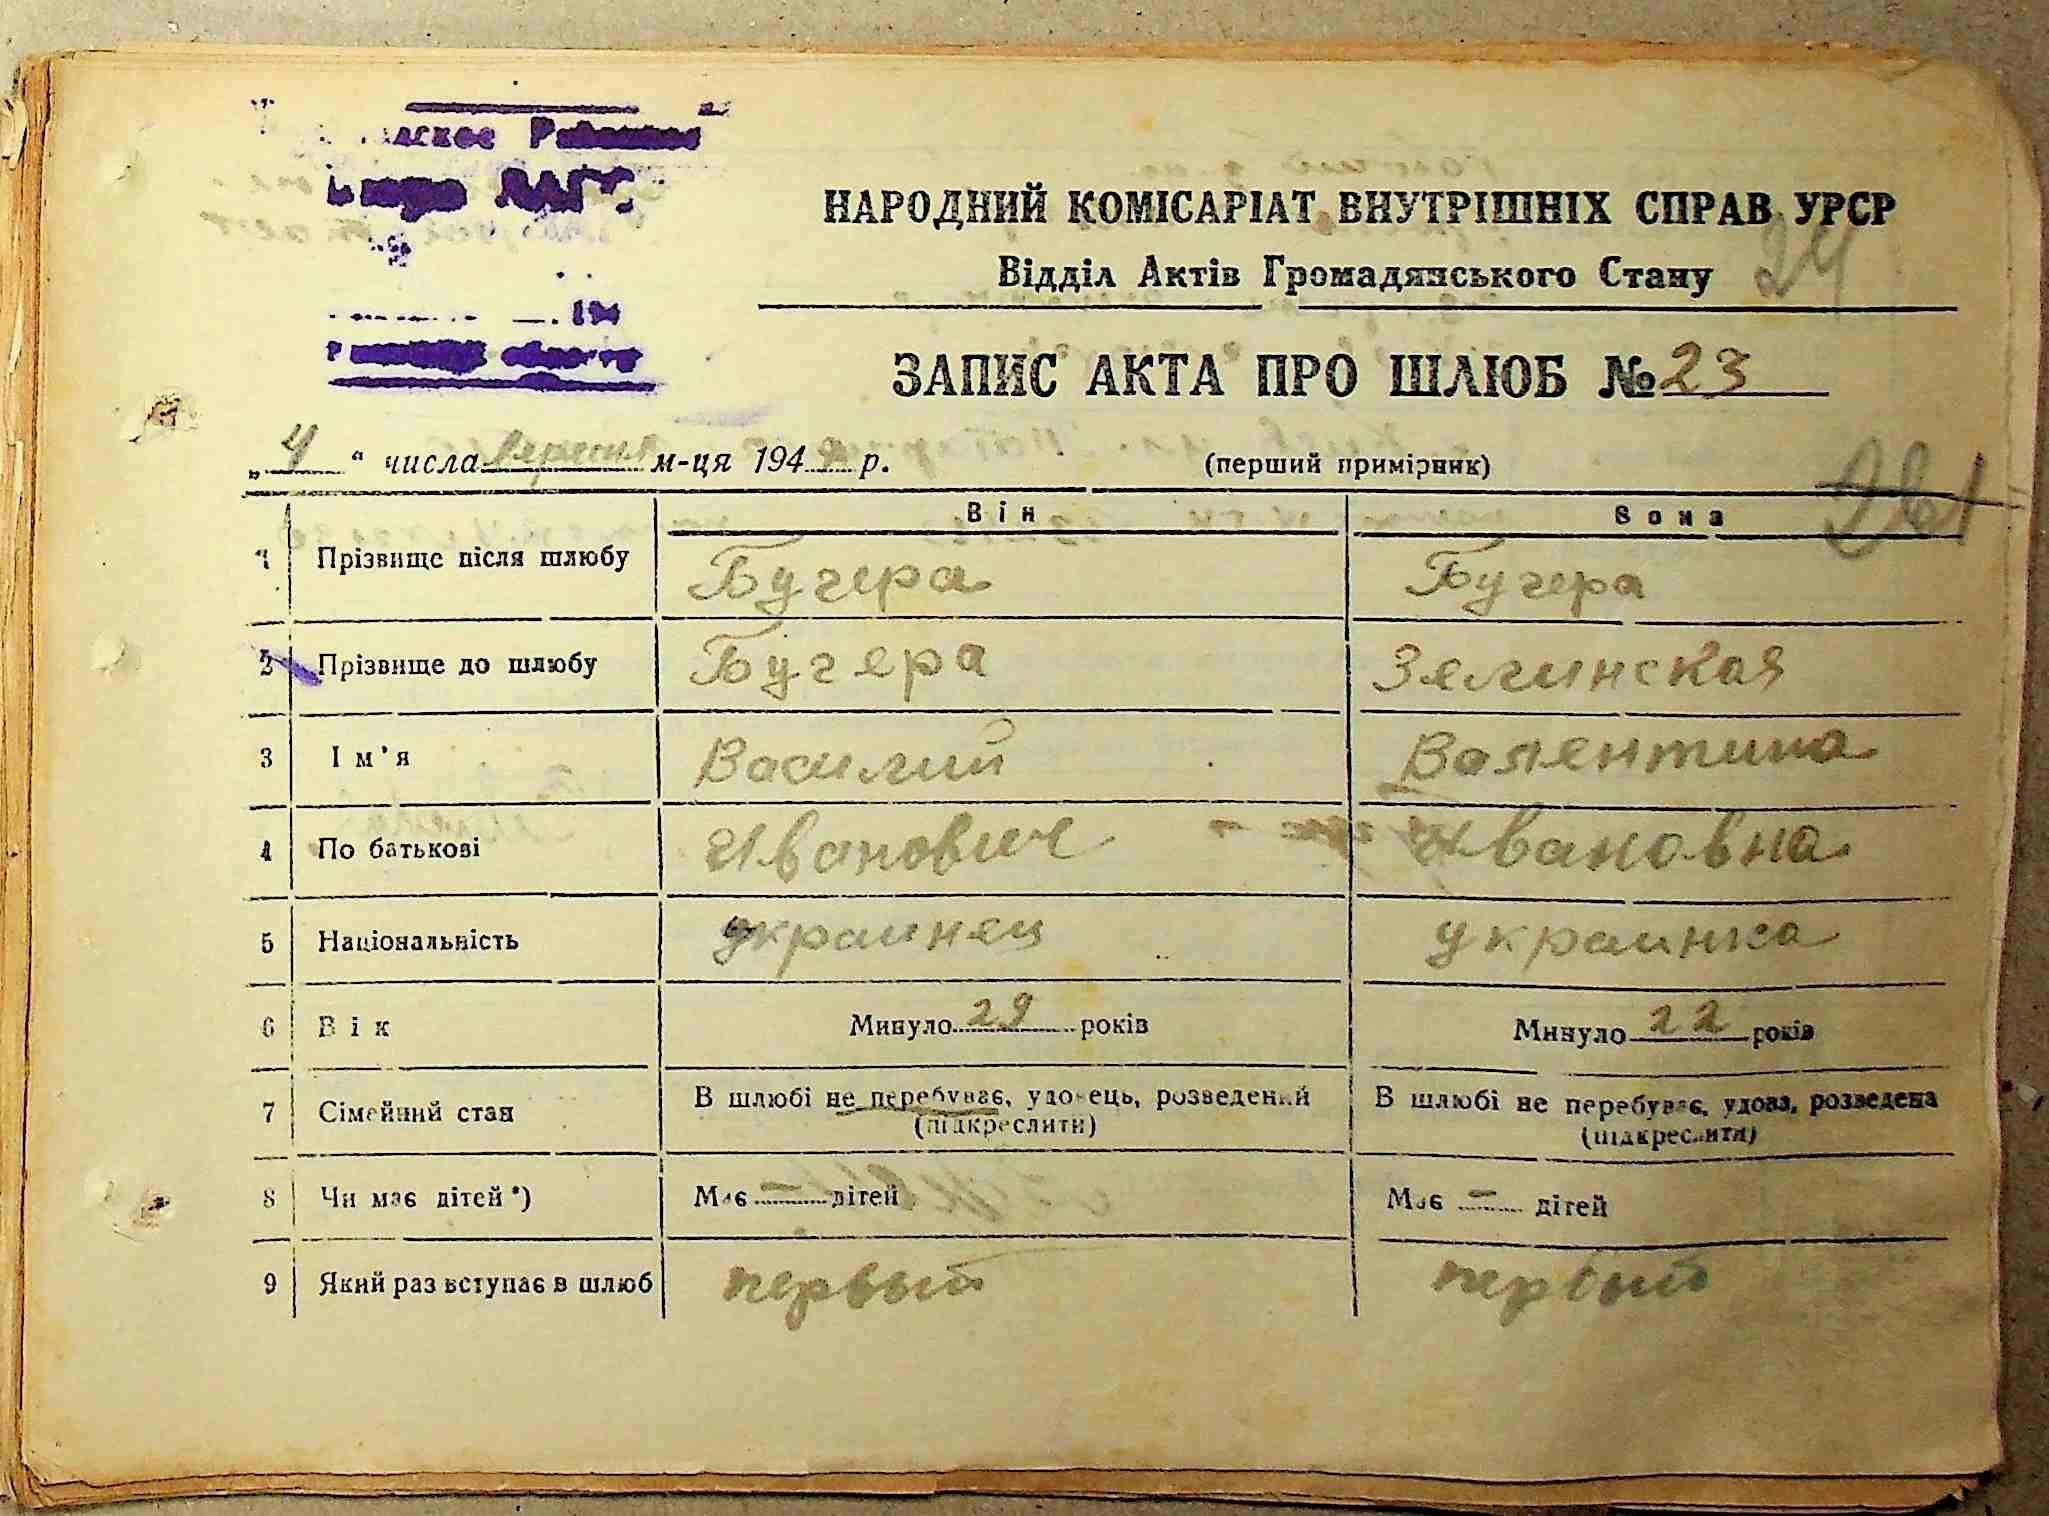 НАРОДНИЙ КОМІСАРІАТ ВНУТРІШНІХ СПРАВ УРСР
Відділ Актів Громадянського Стану
24
194
области
ЗАПИС АКТА ПРО ШЛЮБ № 23
„ 4 “ числа вересня м-ця 194 р.
(перший примірник)
Він Вона
1 Прізвище після шлюбу Бучера Бучера
2 Прізвище до шлюбу Бучера Зелинская
3 Ім'я Василий Валентина
4 По батькові Иванович Ивановна
5 Національність украинец украинка
6 Вік Минуло 29 років Минуло 22 років
7 Сімейний стан В шлюбі не перебуває, удовець, розведений В шлюбі не перебуває, удова, розведена
(підкреслити) (підкреслити)
8 Чи має дітей *) Має — дітей Має — дітей
9 Який раз вступає в шлюб первый первый